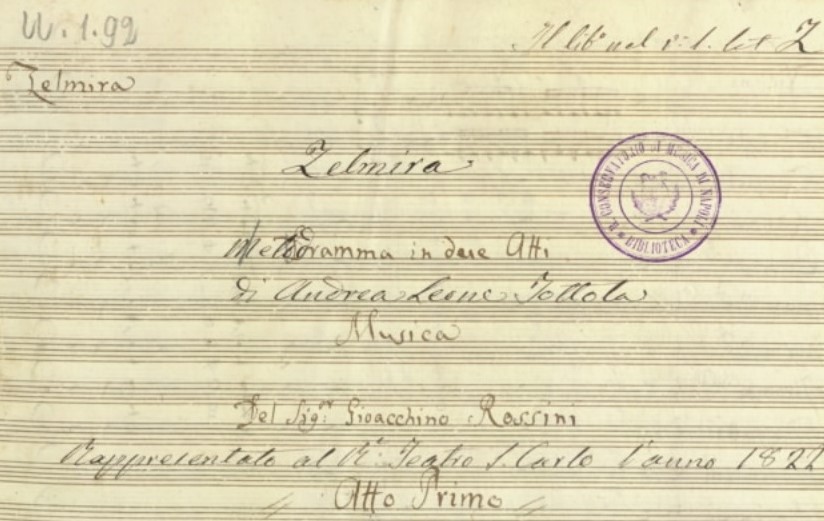 W. 1. 92
Il lib° nel 1° l. let Z
Zelmira
Zelmira
R. CONSERVATORIO DI MUSICA DI NAPOLI
BIBLIOTECA
Melodramma in due Atti
di Andrea Leone Tottola
Musica
Del Sigʳ: Gioacchino Rossini
Rappresentato al R° Teatro S. Carlo l'anno 1822
Atto Primo